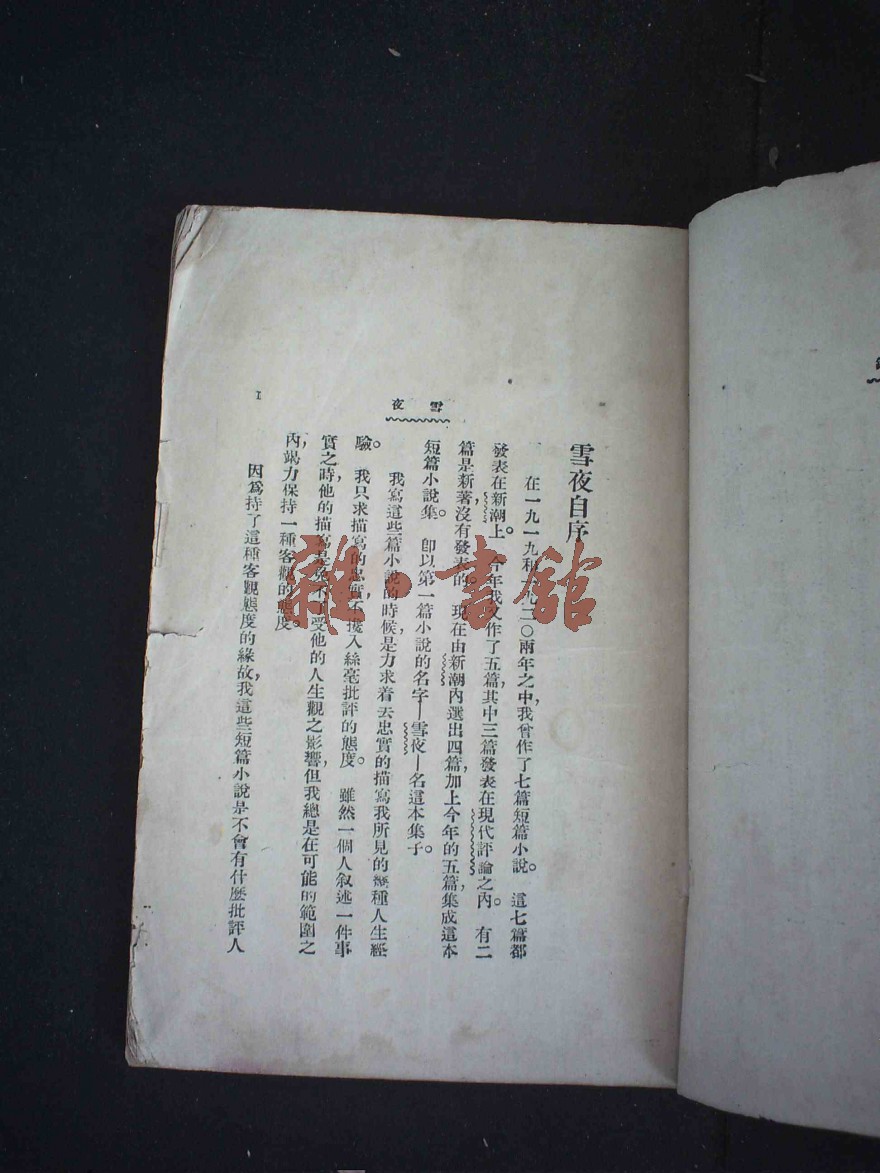 雪夜
雪夜自序
在一九一九和一九二〇兩年之中，我曾作了七篇短篇小說。這七篇都
發表在新潮上。今年我又作了五篇，其中三篇發表在現代評論之內。有二
篇是新著，沒有發表的。現在由新潮內選出四篇，加上今年的五篇，集成這本
短篇小說集。卽以第一篇小說的名字—雪夜—名這本集子。
我寫這些篇小說的時候，是力求着去忠實的描寫我所見的幾種人生經
驗。我只求描寫的忠實，不攙入絲毫批評的態度。雖然一個人叙述一件事
實之時，他的描寫是免不了受他的人生觀之影響，但我總是在可能的範圍之
內，竭力保持一種客觀的態度。
因爲持了這種客觀態度的緣故，我這些短篇小說是不會有什麽批評人
I
雜·書館